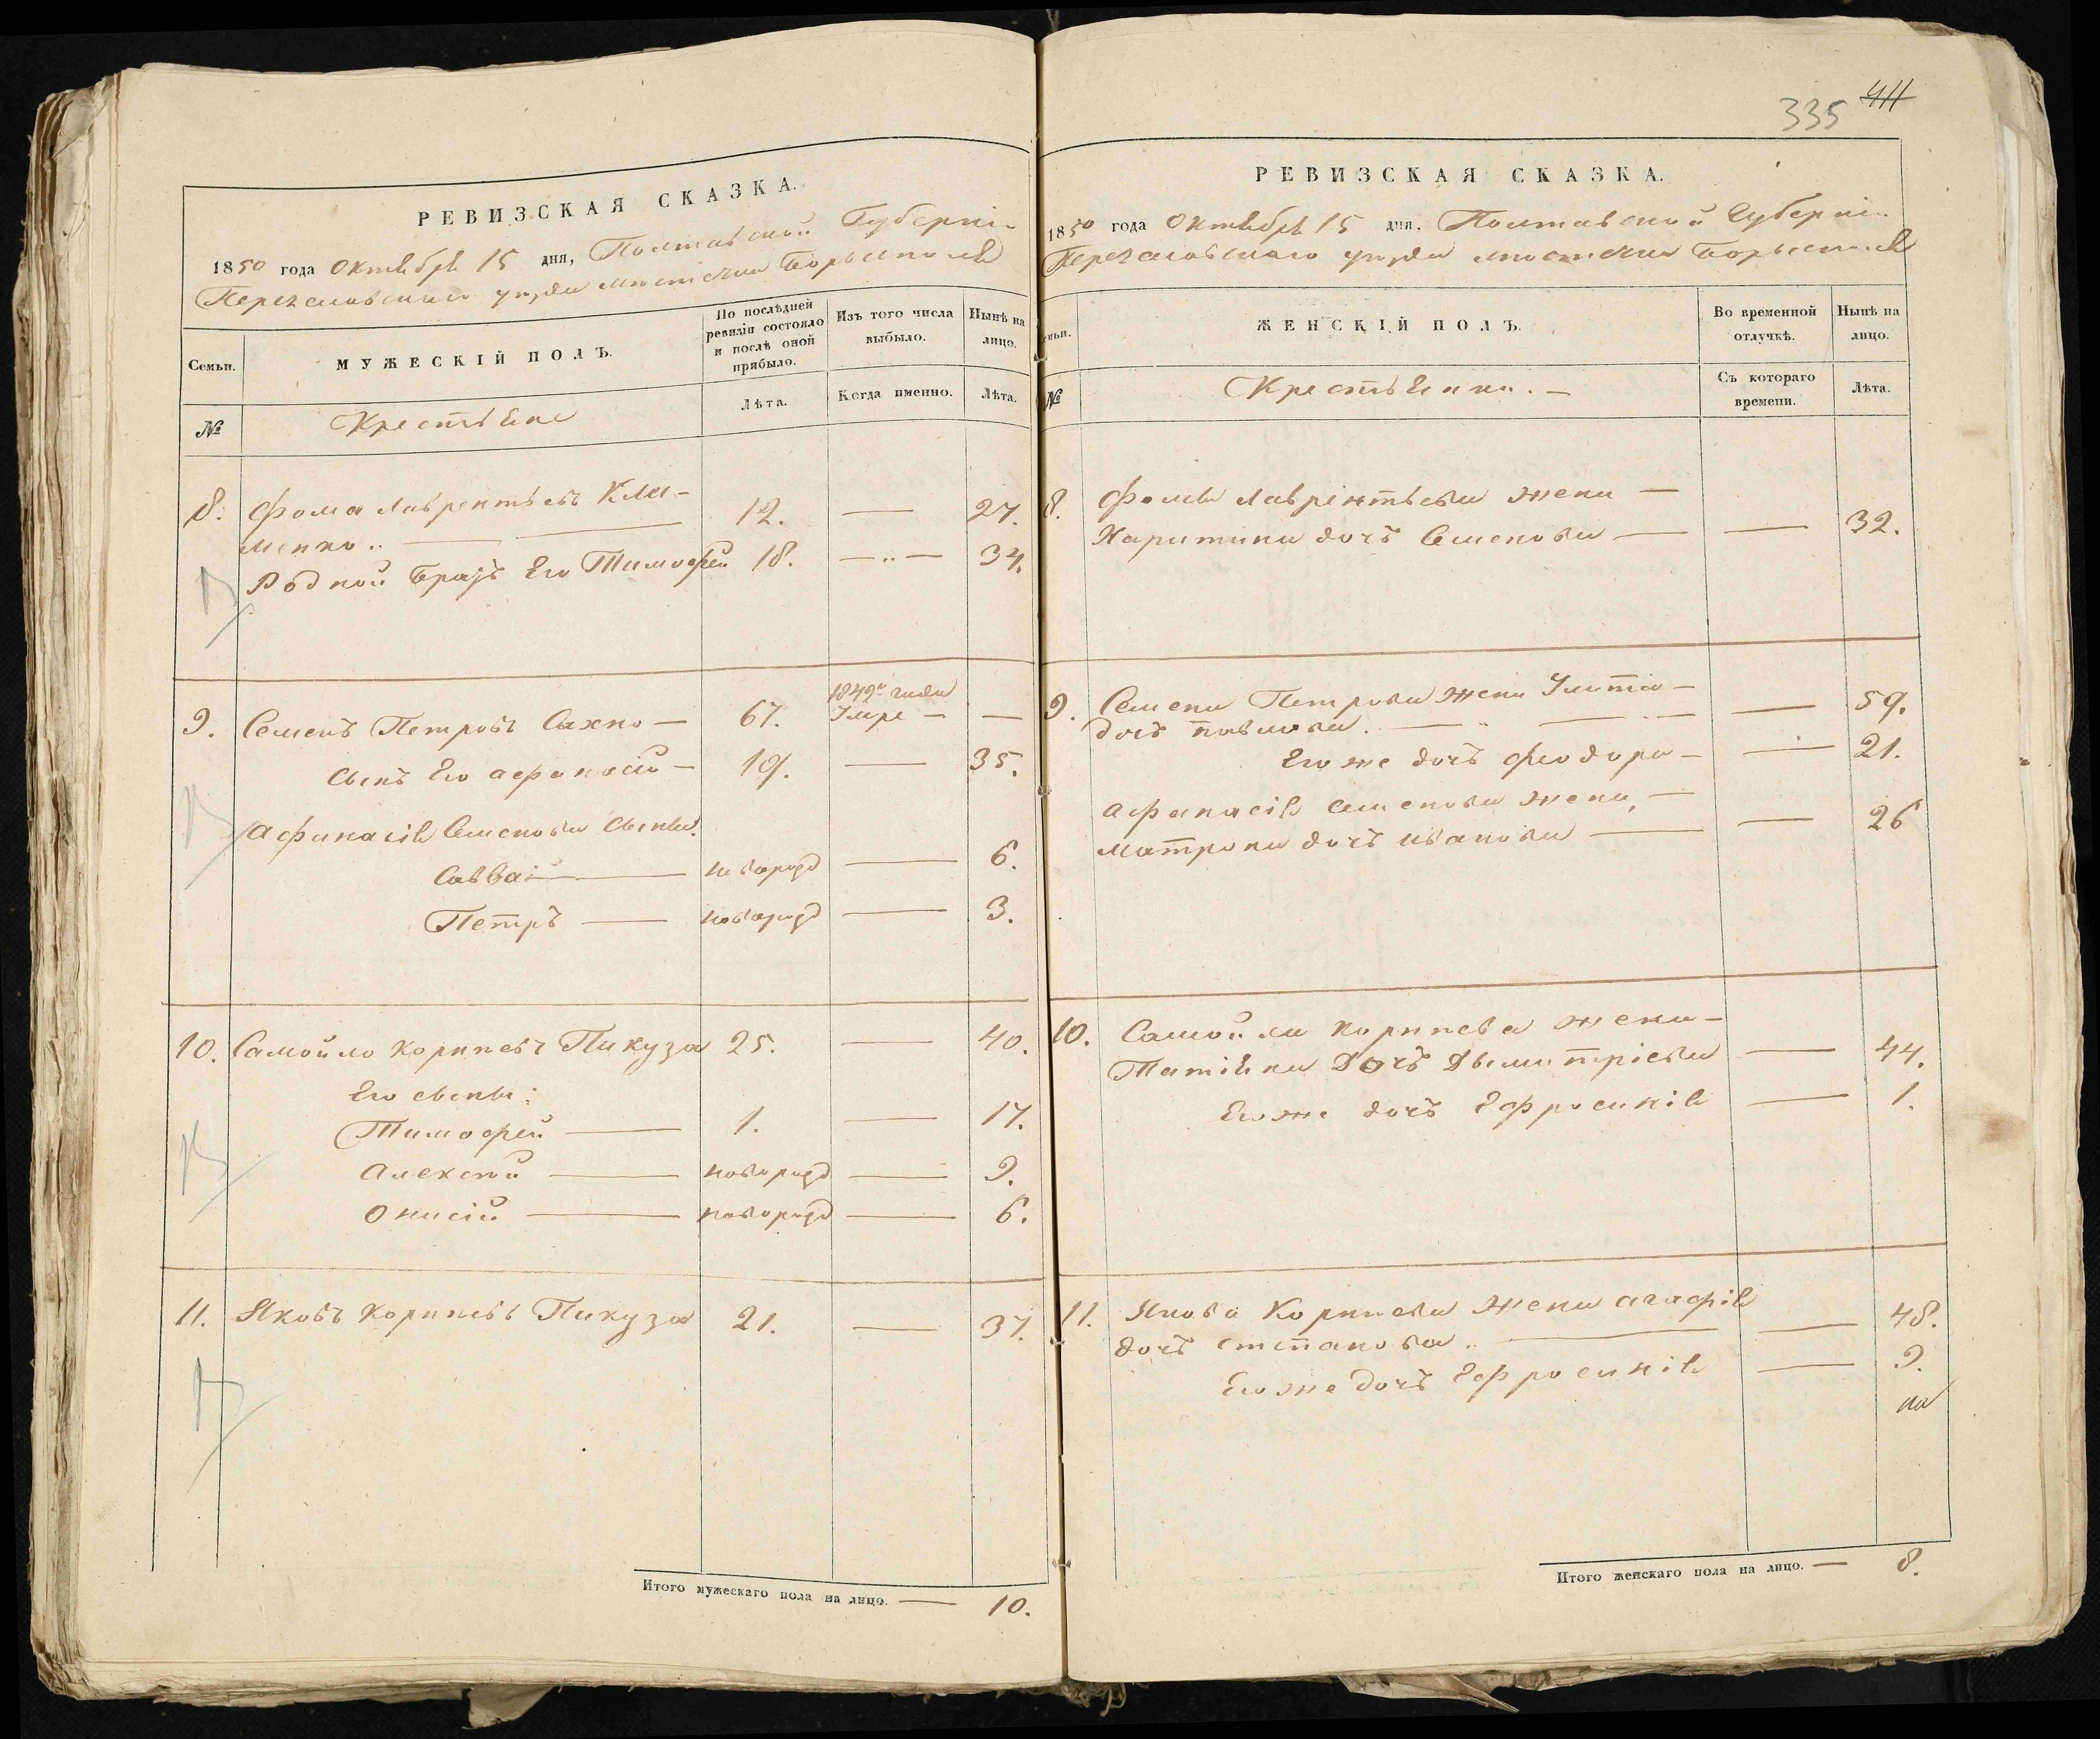 РЕВИЗСКАЯ СКАЗКА.
1850 года Октября 15 дня, Полтавской Губерніи
Переяславскаго уезда местечка Борысполя
Семьи. МУЖЕСКІЙ ПОЛЪ. По послѣдней ревизіи состояло и послѣ оной прибыло. Изъ того числа выбыло. Нынѣ на лицо.
№ Крестьяне Лѣта. Когда именно. Лѣта.
8. Фома Лаврентьевъ Кли-
менко .. 12. — 27.
Родной Братъ Его Тимофей 18. — 34.
9. Семенъ Петровъ Сахно — 67. 1849го года Умре — —
Сынъ Его Афанасій — 19. — 35.
Афанасія Семенова Сыны.
Савва — новорожд — 6.
Петръ — новорожд — 3.
10. Самойло Корнпевъ Пикуза 25. — 40.
Его сыны:
Тимофей — 1. — 17.
Алексѣй — новорожд — 9.
Онисій — новорожд — 6.
11. Яковъ Корнпевъ Пикуза 21. — 37.
Итого мужескаго пола на лицо. — 10.
335 411
РЕВИЗСКАЯ СКАЗКА.
1850 года Октября 15 дня, Полтавской Губерніи
Переяславскаго уезда местечка Борысполя
Семьи. ЖЕНСКІЙ ПОЛЪ. Во временной отлучкѣ. Нынѣ на лицо.
№ Крестьянки. — Съ котораго времени. Лѣта.
8. Фомы Лаврентьева жена —
Харитина дочь Семенова — — 32.
9. Семена Петрова жена Улита —
дочь Павлова. — — 59.
Его же дочь Феодора — — 21.
Афанасія Семенова жена, —
Матрона дочь Иванова — — 26
10. Самойла Корнпева жена —
Татіяна Дочь Дымитріева — 44.
Его же дочь Ефросинія — 1.
11. Якова Корнпева жена Агафія
дочь Степанова .. — — 48.
Его же дочь Ефросинія — 9.
Итого женскаго пола на лицо. — 8.